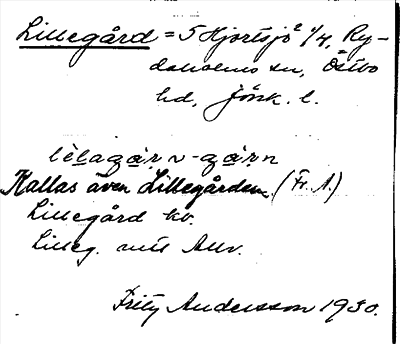 Lillegård = 5 Hjortsjö 2 1/4, Ry-
daholms sn, Östbo
hd, Jönk. l.
lèlagạ́ṛ ṇ v -gạ́ṛ ṇ
Kallas även Lillegården (Fr. A.)
Lillegård kv.
Lilleg.
Fritz Andersson 1930.